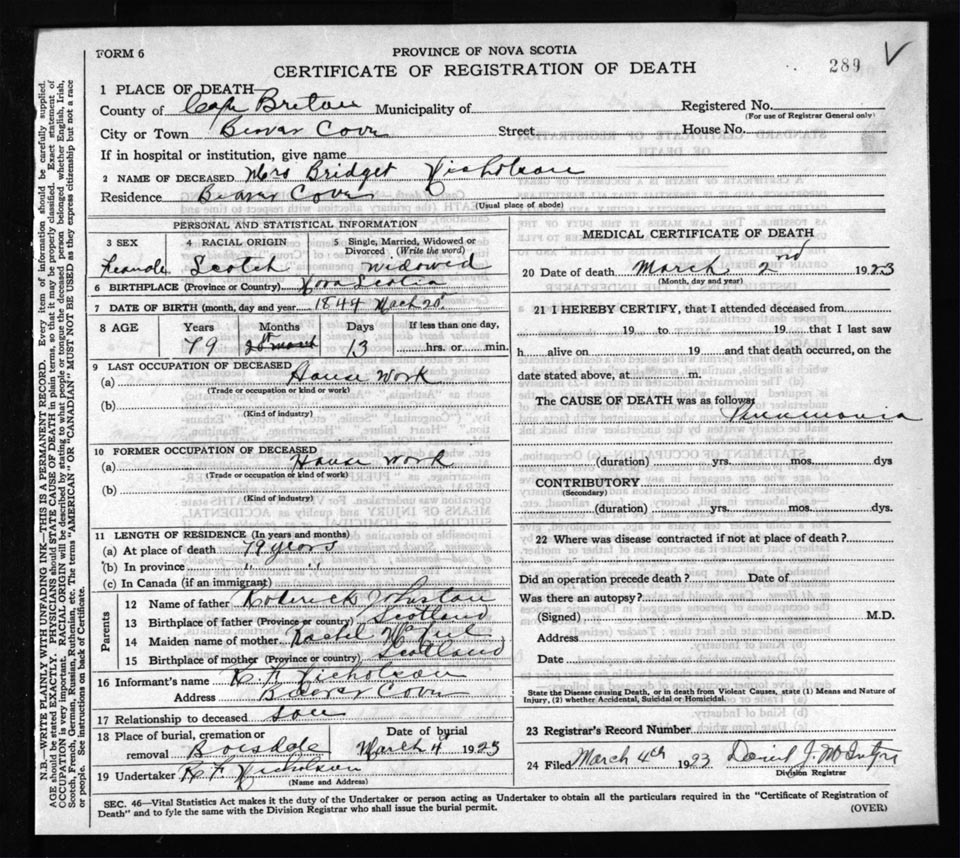 FORM 6
PROVINCE OF NOVA SCOTIA
CERTIFICATE OF REGISTRATION OF DEATH
289
1 PLACE OF DEATH
County of Cape Breton Municipality of Registered No.
(For use of Registrar General only)
City or Town Beaver Cove Street House No.
If in hospital or institution, give name
2 NAME OF DECEASED Mrs Bridget Nicholson
Residence Beaver Cove
(Usual place of abode)
PERSONAL AND STATISTICAL INFORMATION
3 SEX 4 RACIAL ORIGIN 5 Single, Married, Widowed or Divorced (Write the word)
Female Scotch widowed
6 BIRTHPLACE (Province or Country) Nova Scotia
7 DATE OF BIRTH (month, day and year) 1844 March 20
8 AGE Years Months Days If less than one day,
79 13 hrs. or min.
9 LAST OCCUPATION OF DECEASED
(a) House Work
(Trade or occupation or kind or work)
(b)
(Kind of industry)
10 FORMER OCCUPATION OF DECEASED
(a) House Work
(Trade or occupation or kind of work)
(b)
(Kind of industry)
11 LENGTH OF RESIDENCE (In years and months)
(a) At place of death 79 years
(b) In province " "
(c) In Canada (if an immigrant)
Parents
12 Name of father Roderick Johnston
13 Birthplace of father (Province or country) Scotland
14 Maiden name of mother Rachel McNeil
15 Birthplace of mother (Province or country) Scotland
16 Informant's name R. F. Nicholson
Address Beaver Cove
17 Relationship to deceased son
18 Place of burial, cremation or Date of burial
removal Boisdale March 4 1923
19 Undertaker R. F. Nicholson
(Name and Address)
MEDICAL CERTIFICATE OF DEATH
20 Date of death March 2nd 1923
(Month, day and year)
21 I HEREBY CERTIFY, that I attended deceased from
19 to 19 that I last saw
h alive on 19 and that death occurred, on the
date stated above, at m.
The CAUSE OF DEATH was as follows:
Pneumonia
(duration) yrs. mos. dys
CONTRIBUTORY
(Secondary)
(duration) yrs. mos. dys.
22 Where was disease contracted if not at place of death?
Did an operation precede death? Date of
Was there an autopsy?
(Signed) M.D.
Address
Date
State the Disease causing Death, or in death from Violent Causes, state (1) Means and Nature of
Injury, (2) whether Accidental, Suicidal or Homicidal.
23 Registrar's Record Number
24 Filed March 4th 1923 Daniel J. McIntyre
Division Registrar
SEC. 46—Vital Statistics Act makes it the duty of the Undertaker or person acting as Undertaker to obtain all the particulars required in the "Certificate of Registration of
Death" and to fyle the same with the Division Registrar who shall issue the burial permit.
(OVER)
N.B.—WRITE PLAINLY WITH UNFADING INK—THIS IS A PERMANENT RECORD. Every item of information should be carefully supplied.
AGE should be stated EXACTLY. PHYSICIANS should STATE CAUSE OF DEATH in plain terms, so that it may be properly classified. Exact statement of
OCCUPATION is very important. RACIAL ORIGIN will be described by stating to what people or tongue the deceased person belonged whether English, Irish,
Scotch, French, German, Russian, Ruthenian, etc. The terms "AMERICAN" or "CANADIAN" MUST NOT BE USED as they express citizenship but not a race
or people. See instructions on back of Certificate.